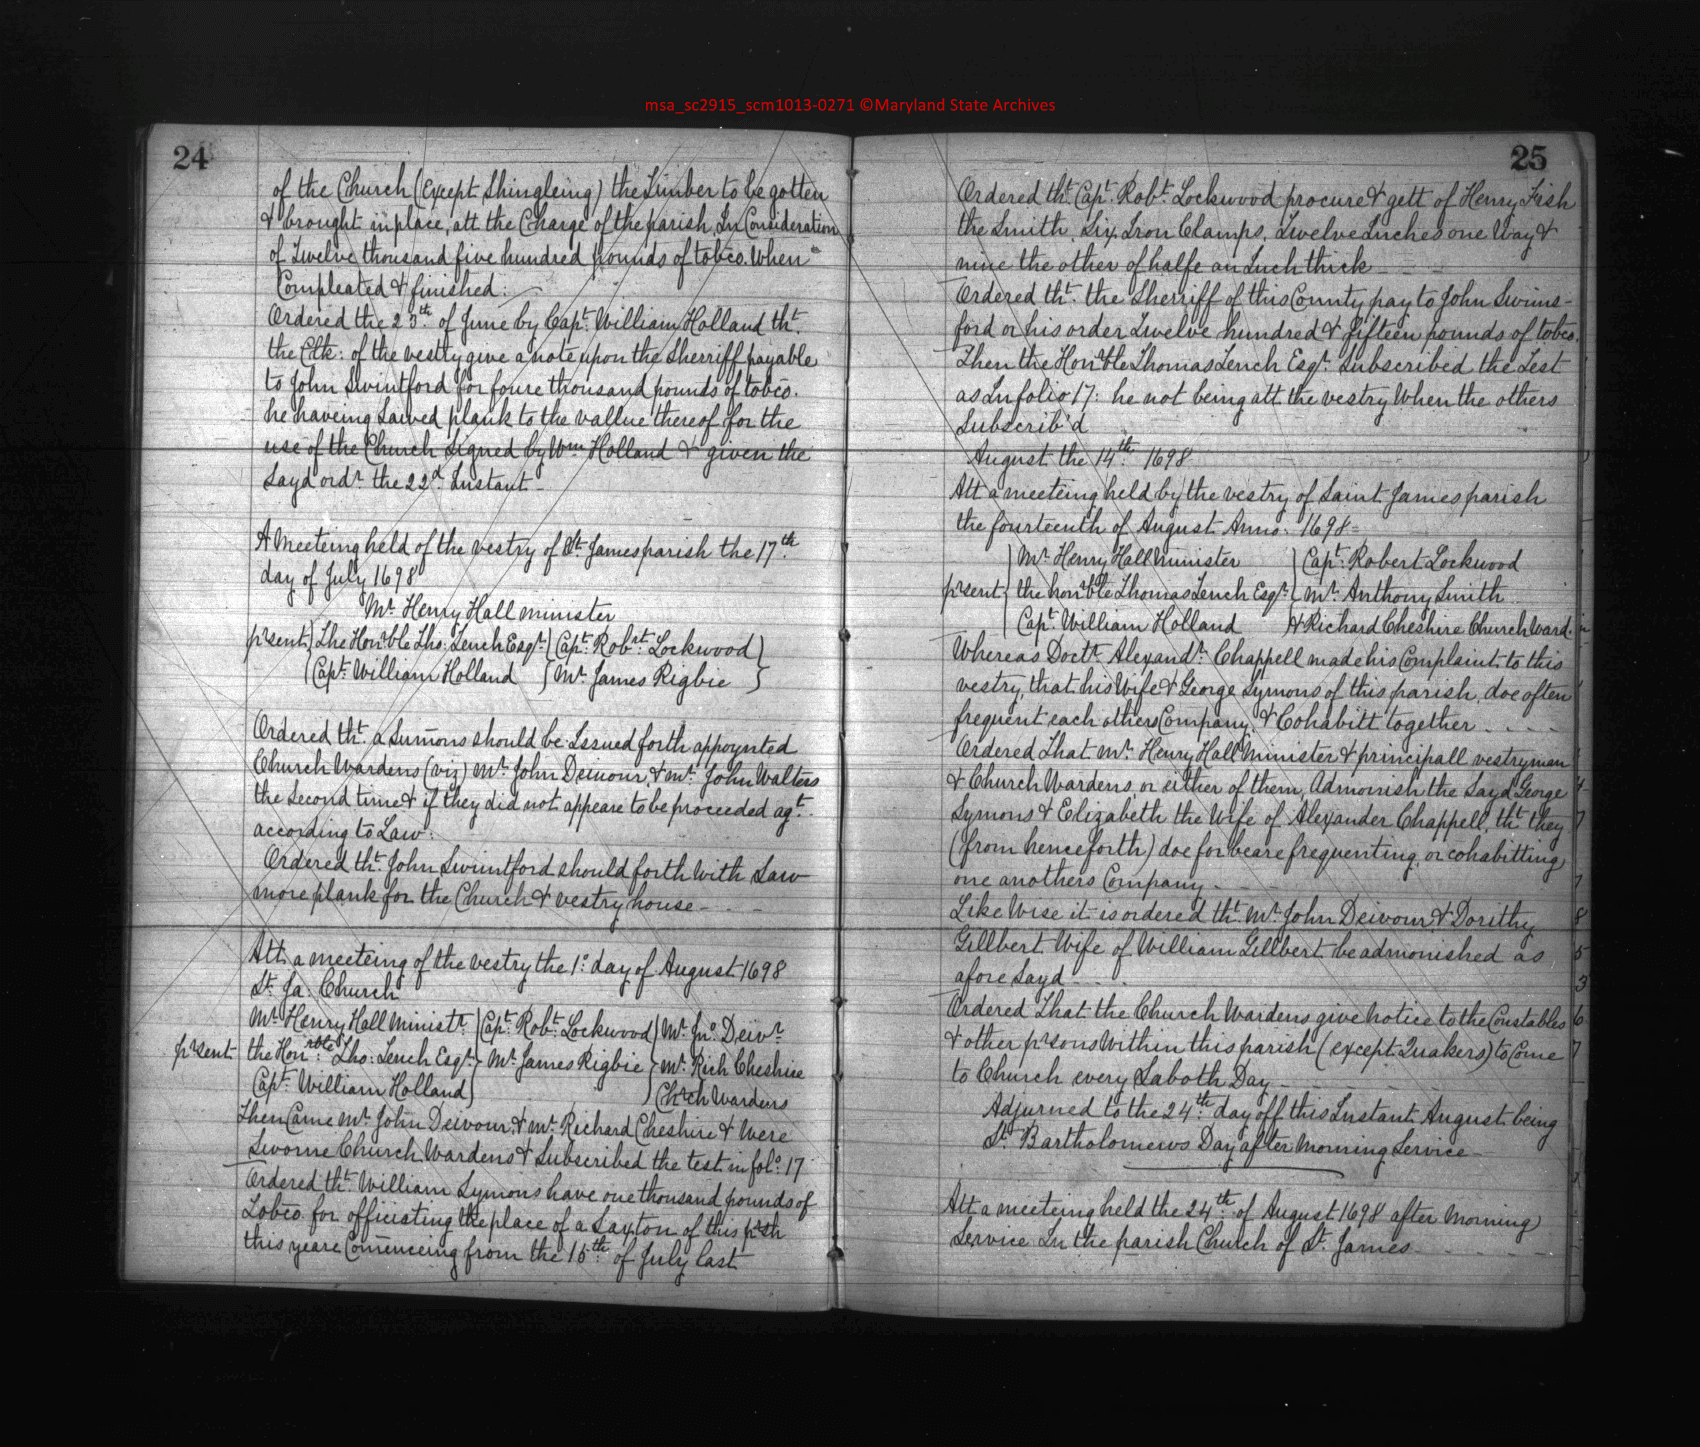 msa_sc2915_scm1013-0271 ©Maryland State Archives
24
of the Church (Except Shingleing) the Timber to be gotten
& brought in place, att the Charge of the parish, In Consideration
of Twelve thousand five hundred pounds of tobco. When
Compleated & finished:
Ordered the 23th of June by Capt. William Holland tht.
the Clk: of the vestry give a note upon the Sherriff payable
to John Swintford for foure thousand pounds of tobco.
he haveing Sawed plank to the vallue thereof for the
use of the Church Signed by Wm Holland & given the
Sayd ordr. the 22d. Instant
A Meeteing held of the vestry of St. James parish the 17th.
day of July 1698
Mr. Henry Hall minister
prsent The Honrble Tho: Tench Esqr. Capt. Robrt. Lockwood
Capt. William Holland Mr. James Rigbie
Ordered tht. a Sumons should be Issued forth appoynted
Church Wardens (viz) Mr. John Deivour, & Mr. John Walters
the Second time & if they did not appeare to be proceeded agt.
according to Law:
Ordered tht. John Swintford should forth With Saw
more plank for the Church & vestry house
Att a meeteing of the vestry the 1o. day of August 1698
St. Ja. Church
Mr. Henry Hall Ministr. Capt. Robt. Lockwood Mr. Jno. Deivr.
prsent the Honrble. Tho: Tench Esqr. Mr. James Rigbie Mr. Rich Cheshire
Capt. William Holland Chrch Wardens
Then Came Mr. John Deivour, & Mr. Richard Cheshire & Were
Sworne Church Wardens & Subscribed the test in folo: 17
Ordered tht. William Symons have one thousand pounds of
Tobco for officiating the place of a Saxton of this prsh
this yeare Comenceing from the 15th. of July last
25
Ordered tht. Capt. Robt. Lockwood procure & gett of Henry Fish
the Smith, Six Iron Clamps, Twelve Inches one Way &
nine the other of halfe an Inch thick
Ordered tht. the Sherriff of this County pay to John Swins-
ford or his order Twelve hundred & fifteen pounds of tobco.
Then the Honrble Thomas Tench Esqr. Subscribed the Test
as In folio 17: he not being att the vestry When the others
Subscrib'd
August the 14th. 1698
Att a meeteing held by the vestry of Saint James parish
the fourteenth of August Anno: 1698=
Mr. Henry Hall Minister Capt. Robert Lockwood
prsent the honrble Thomas Tench Esqr. Mr. Anthony Smith
Capt. William Holland & Richard Cheshire Church Ward.
Whereas Doctr. Alexandr. Chappell made his Complaint to this
vestry, that his Wife & George Symons of this parish, doe often
frequent each others Company & Cohabitt together
Ordered That Mr. Henry Hall Minister & principall vestryman
& Church Wardens, or either of them, Admonish the Sayd George
Symons & Elizabeth the Wife of Alexander Chappell, tht. they
(from henceforth) doe forbeare frequenting, or cohabitting
one anothers Company
Like Wise it is ordered tht. Mr. John Deivour & Dorithy
Gillbert Wife of William Gillbert be admonished as
afore Sayd
Ordered That the Church Wardens give notice to the Constables
& other prsons Within this parish (except Quakers) to Come
to Church every Saboth Day
Adjurned to the 24th. day off this Instant August being
St. Bartholomews Day after Morning Service
Att a meeteing held the 24th. of August 1698 after Morning
Service In the parish Church of St. James